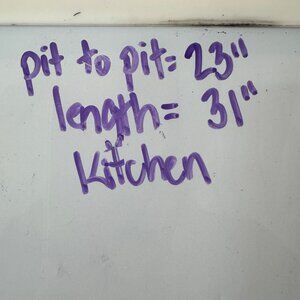 pit to pit= 23"
length= 31"
Kitchen